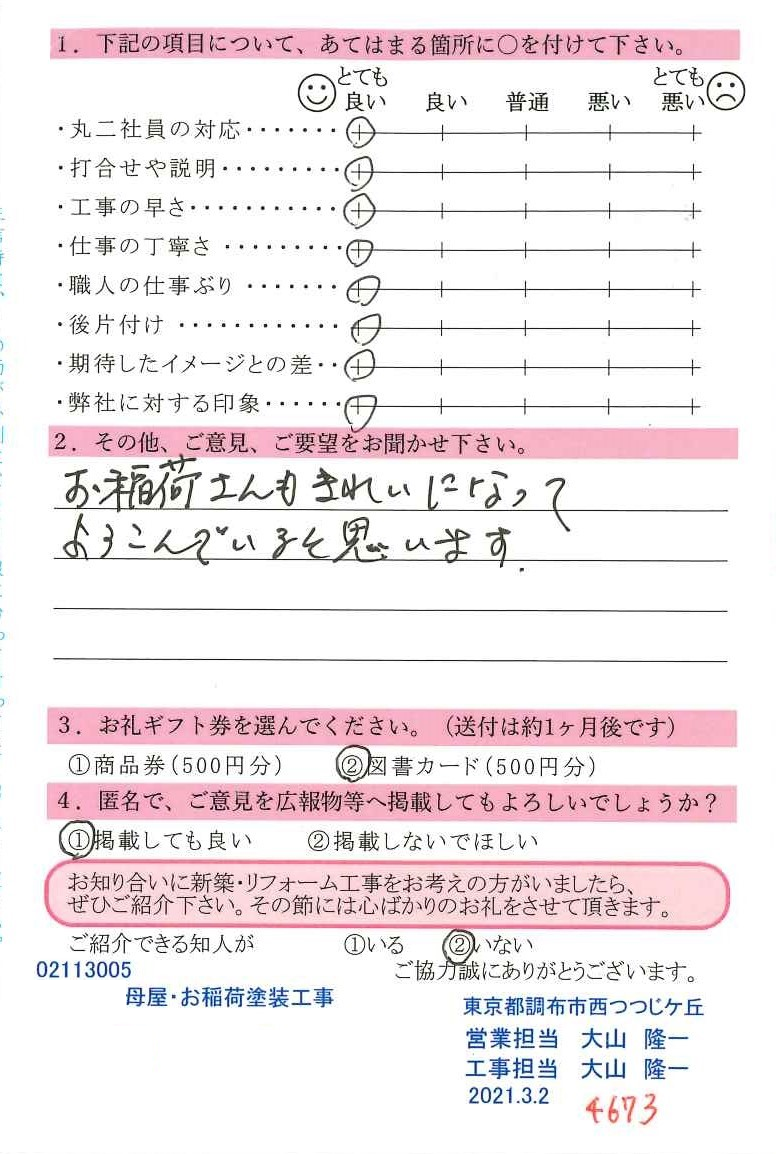 1．下記の項目について、あてはまる箇所に〇を付けて下さい。
とても良い　良い　普通　悪い　とても悪い
・丸二社員の対応・・・・・・・
・打合せや説明・・・・・・・・・
・工事の早さ・・・・・・・・・・・
・仕事の丁寧さ・・・・・・・・・
・職人の仕事ぶり・・・・・・・
・後片付け・・・・・・・・・・・・
・期待したイメージとの差・・
・弊社に対する印象・・・・・・
2．その他、ご意見、ご要望をお聞かせ下さい。
お稲荷さんもきれいになって
ようこんでいると思います.
3．お礼ギフト券を選んでください。（送付は約1ヶ月後です）
①商品券（500円分）　②図書カード（500円分）
4．匿名で、ご意見を広報物等へ掲載してもよろしいでしょうか？
①掲載しても良い　②掲載しないでほしい
お知り合いに新築・リフォーム工事をお考えの方がいましたら、
ぜひご紹介下さい。その節には心ばかりのお礼をさせて頂きます。
ご紹介できる知人が　①いる　②いない
ご協力誠にありがとうございます。
02113005
母屋・お稲荷塗装工事
東京都調布市西つつじケ丘
営業担当　大山　隆一
工事担当　大山　隆一
2021.3.2
4673